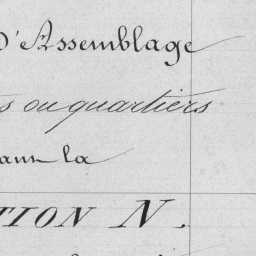 D'Assemblage
s ou quartiers
dans la
TION N.